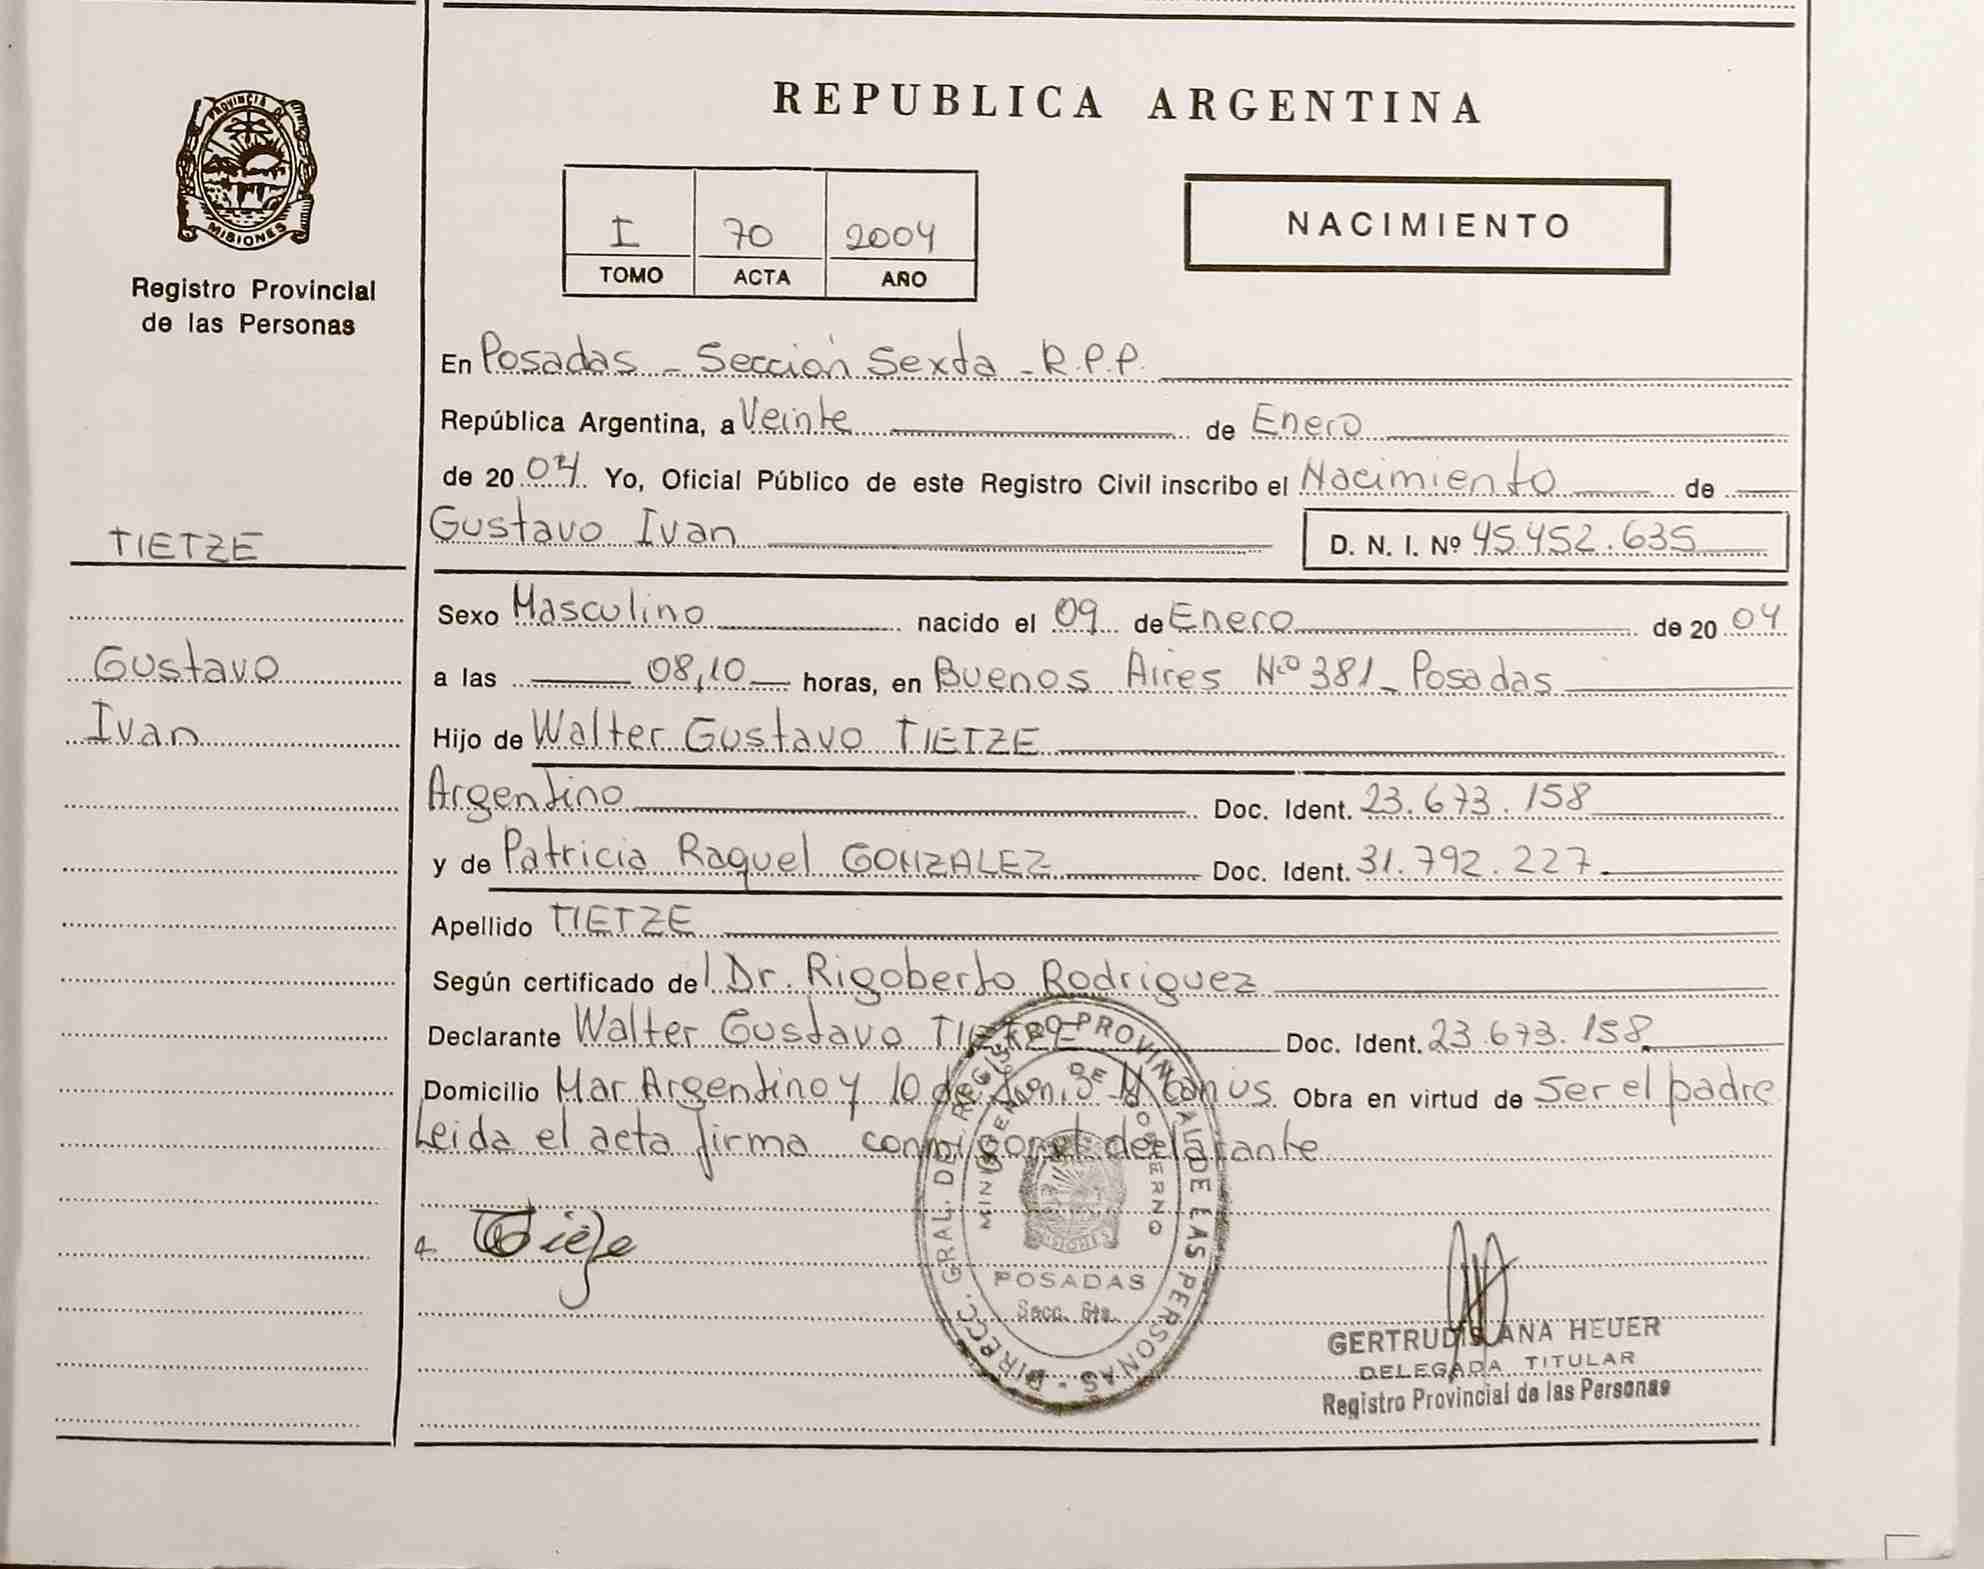 REPUBLICA ARGENTINA
PROVINCIA DE
MISIONES
Registro Provincial
de las Personas
I 70 2004
TOMO ACTA AÑO
NACIMIENTO
En Posadas - Sección Sexta - R.P.P.
República Argentina, a Veinte de Enero
de 2004 Yo, Oficial Público de este Registro Civil inscribo el Nacimiento de
TIETZE
Gustavo Ivan D. N. I. Nº 45.452.635
Sexo Masculino nacido el 09 de Enero de 2004
Gustavo
a las 08,10 horas, en Buenos Aires Nº 381 - Posadas
Ivan
Hijo de Walter Gustavo TIETZE
Argentino Doc. Ident. 23.673.158
y de Patricia Raquel GONZALEZ Doc. Ident. 31.792.227
Apellido TIETZE
Según certificado del Dr. Rigoberto Rodriguez
Declarante Walter Gustavo TIETZE Doc. Ident. 23.673.158
Domicilio Mar Argentino y 10 de Obra en virtud de Ser el padre
Leida el acta firma conmigo el declarante
DIRECC. GRAL. DEL REGISTRO PROVINCIAL DE LAS PERSONAS -
MINISTERIO DE GOBIERNO
MISIONES
POSADAS
Secc. 6ta.
GERTRUDIS ANA HEUER
DELEGADA TITULAR
Registro Provincial de las Personas